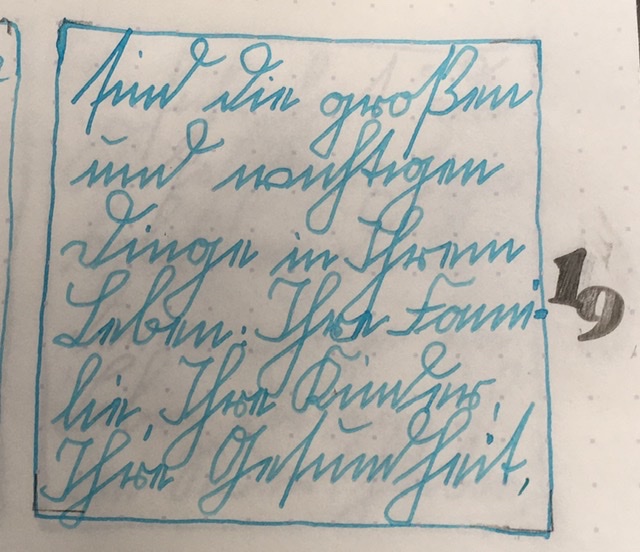 sind die großen
und wichtigen
Dinge in Ihrem
Leben: Ihre Fami-
lie, Ihre Kinder,
Ihre Gesundheit,
19